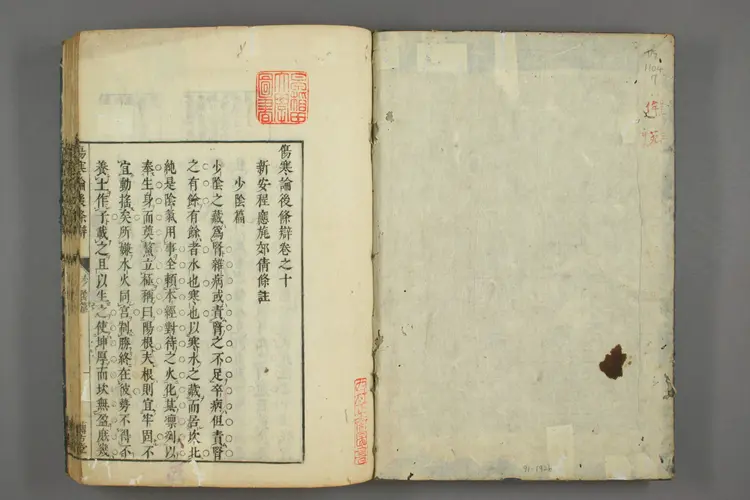 傷寒論後條辯卷之十
新安程應旄郊倩條註
少陰篇
少陰之藏爲腎雜病或責腎之不足卒病但責腎
之有餘有餘者水也寒也以寒水之藏而居坎北
純是陰氣用事全賴本經對待之火化其凛冽以
奉生身而奠鰲立極稱曰陽根夫根則宜牢固不
宜動搖矣所嫌水火同宮制勝終在彼勢不得不
養土作子藏之且以生之使坤厚而坎無盈庶幾
早稻田大學圖書
91-1926